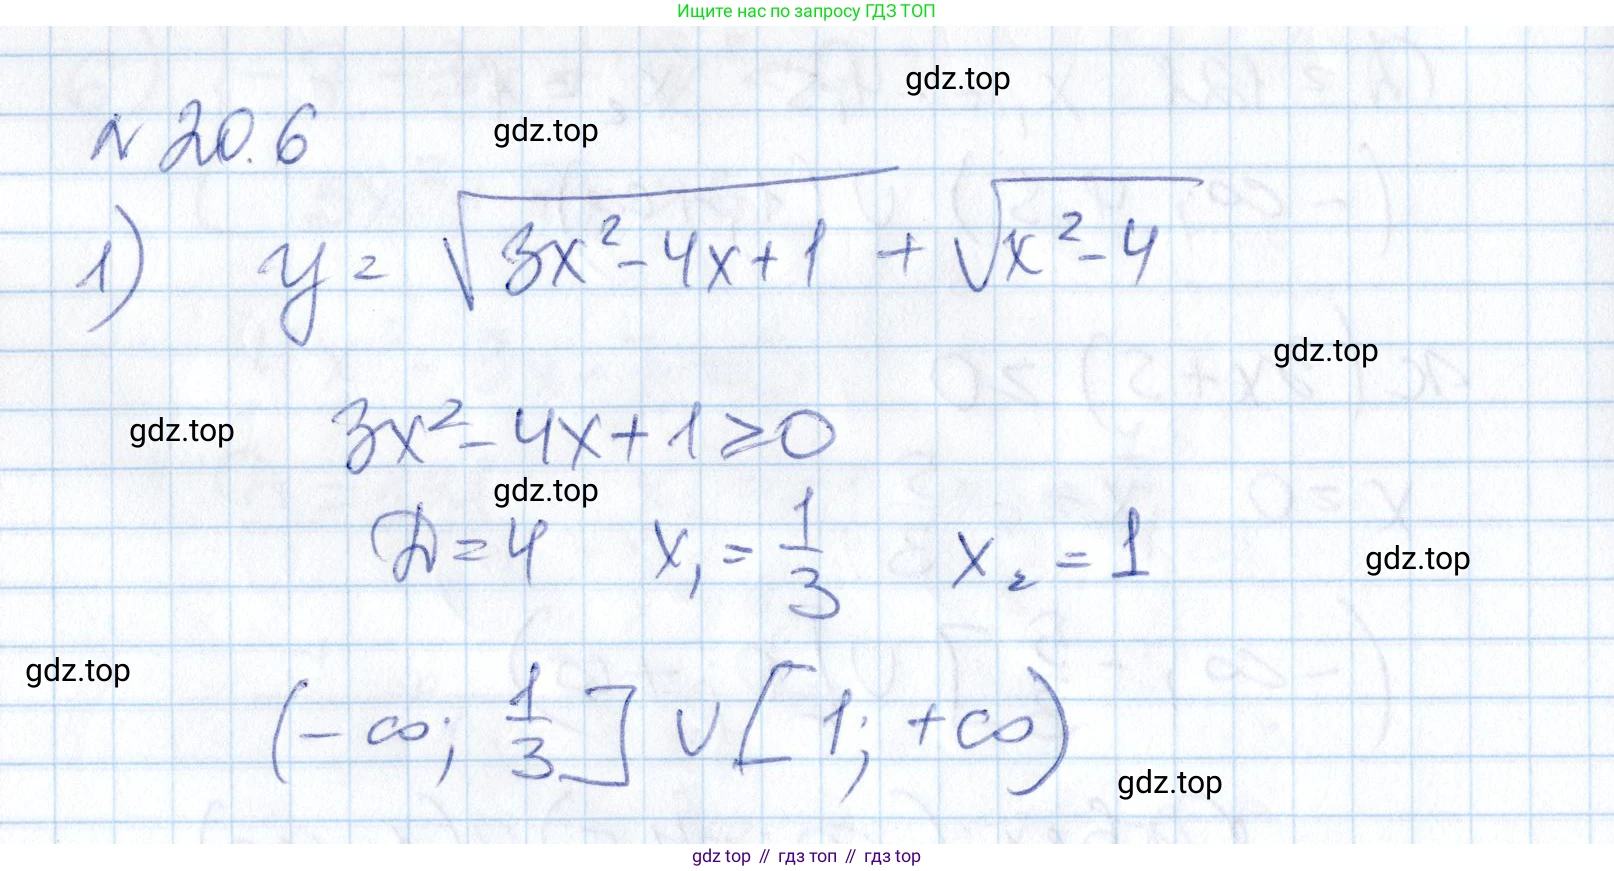 Ищите нас по запросу ГДЗ ТОП
gdz.top
gdz.top
N 20.6
1) y = √(3x² - 4x + 1) + √(x² - 4)
gdz.top
gdz.top
3x² - 4x + 1 ≥ 0
gdz.top
D = 4 x₁ = 1/3 x₂ = 1
gdz.top
gdz.top
(-∞; 1/3] ∪ [1; +∞)
gdz.top
gdz top // гдз топ // гдз top